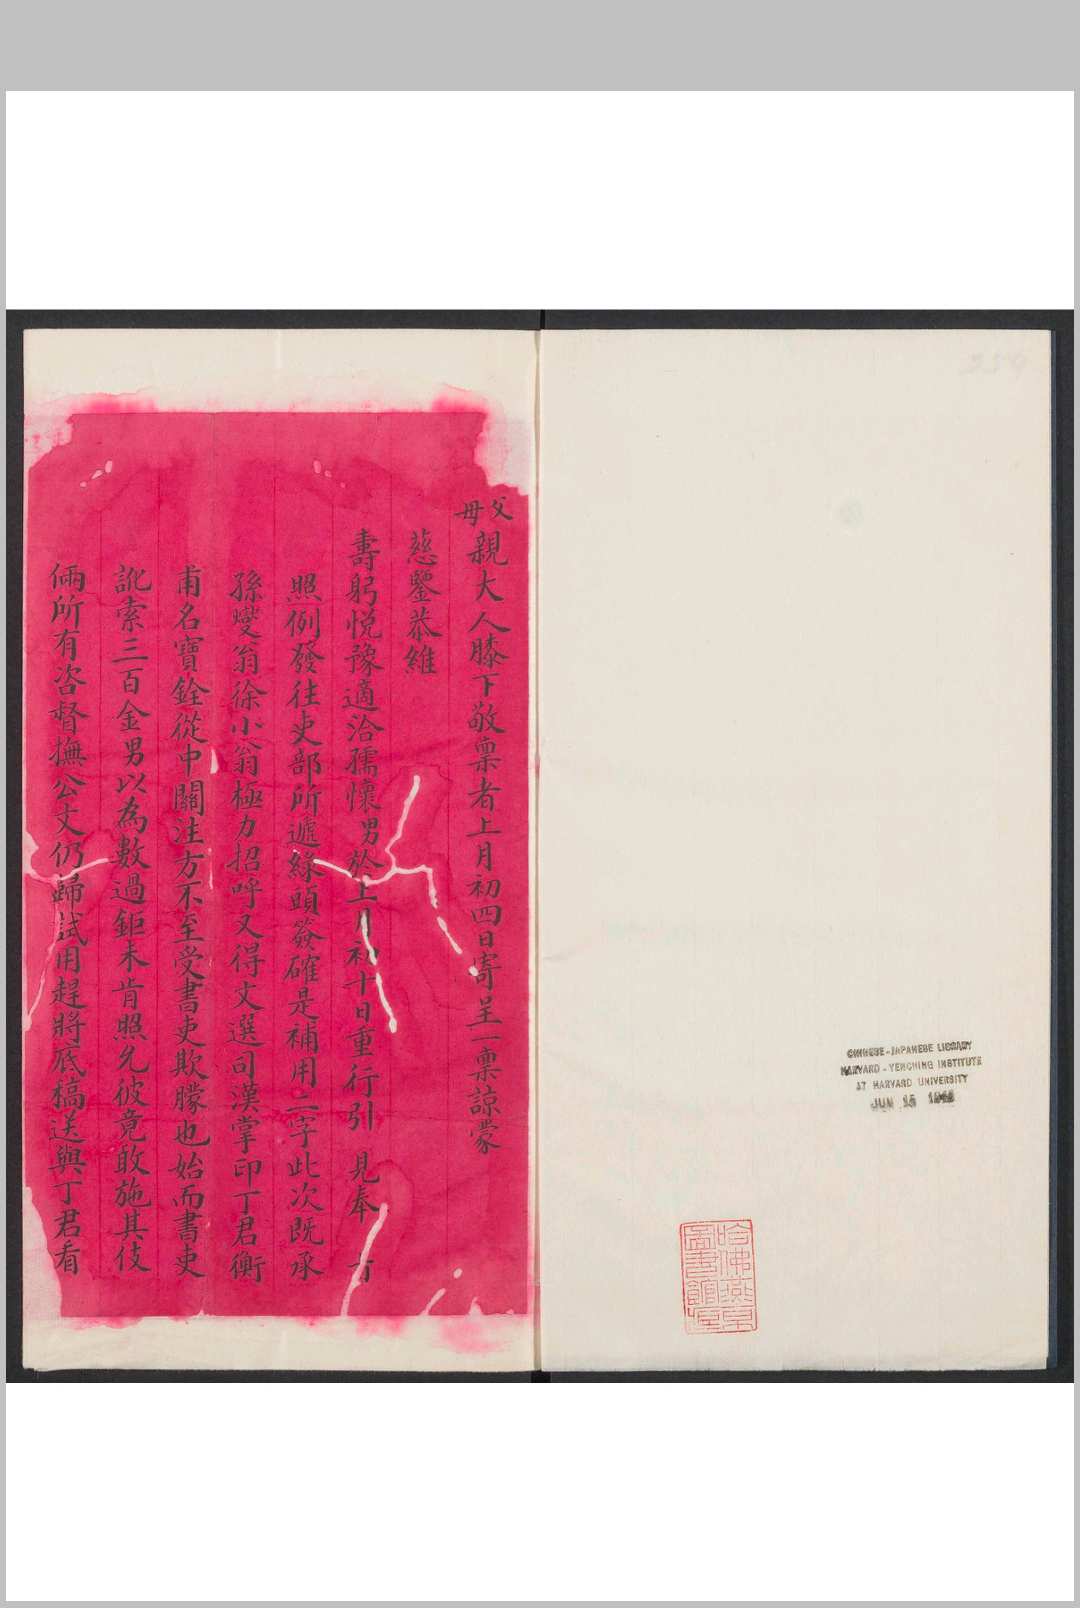 父母親大人膝下敬稟者上月初四日寄呈一稟諒蒙
慈鑒恭維
壽躬悅豫適洽孺懷男於上月初十日重行引 見奉 㫖
照例發往吏部所遞綠頭簽確是補用二字此次既承
孫燮翁徐小翁極力招呼又得文選司漢掌印丁君衡
甫名寶銓從中關注方不至受書吏欺朦也始而書吏
訛索三百金男以為數過鉅未肯照允彼竟敢施其伎
倆所有咨督撫公文仍歸試用趕將底稿送與丁君看
CHINESE-JAPANESE LIBRARY
HARVARD-YENCHING INSTITUTE
AT HARVARD UNIVERSITY
JUN 15
哈佛燕京
圖書館